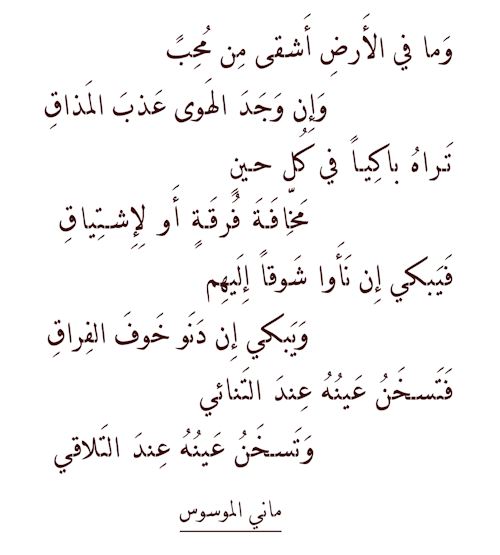 وَما في الأَرضِ أَشقى مِن مُحِبًّ
وَإِن وَجَدَ الهَوى عَذبَ المَذاقِ
تَراهُ باكِياً في كُلِ حينٍ
مَخّافَةَ فُرقَةٍ أَو لِإِشتِياقِ
فَيَبكي إِن نَأَوا شَوقاً إِلَيهِم
وَيَبكي إِن دَنَو خَوفَ الفِراقِ
فَتَسخَنُ عَينُهُ عِندَ التَنائي
وَتَسخَنُ عَينُهُ عِندَ التَلاقي
ماني الموسوس